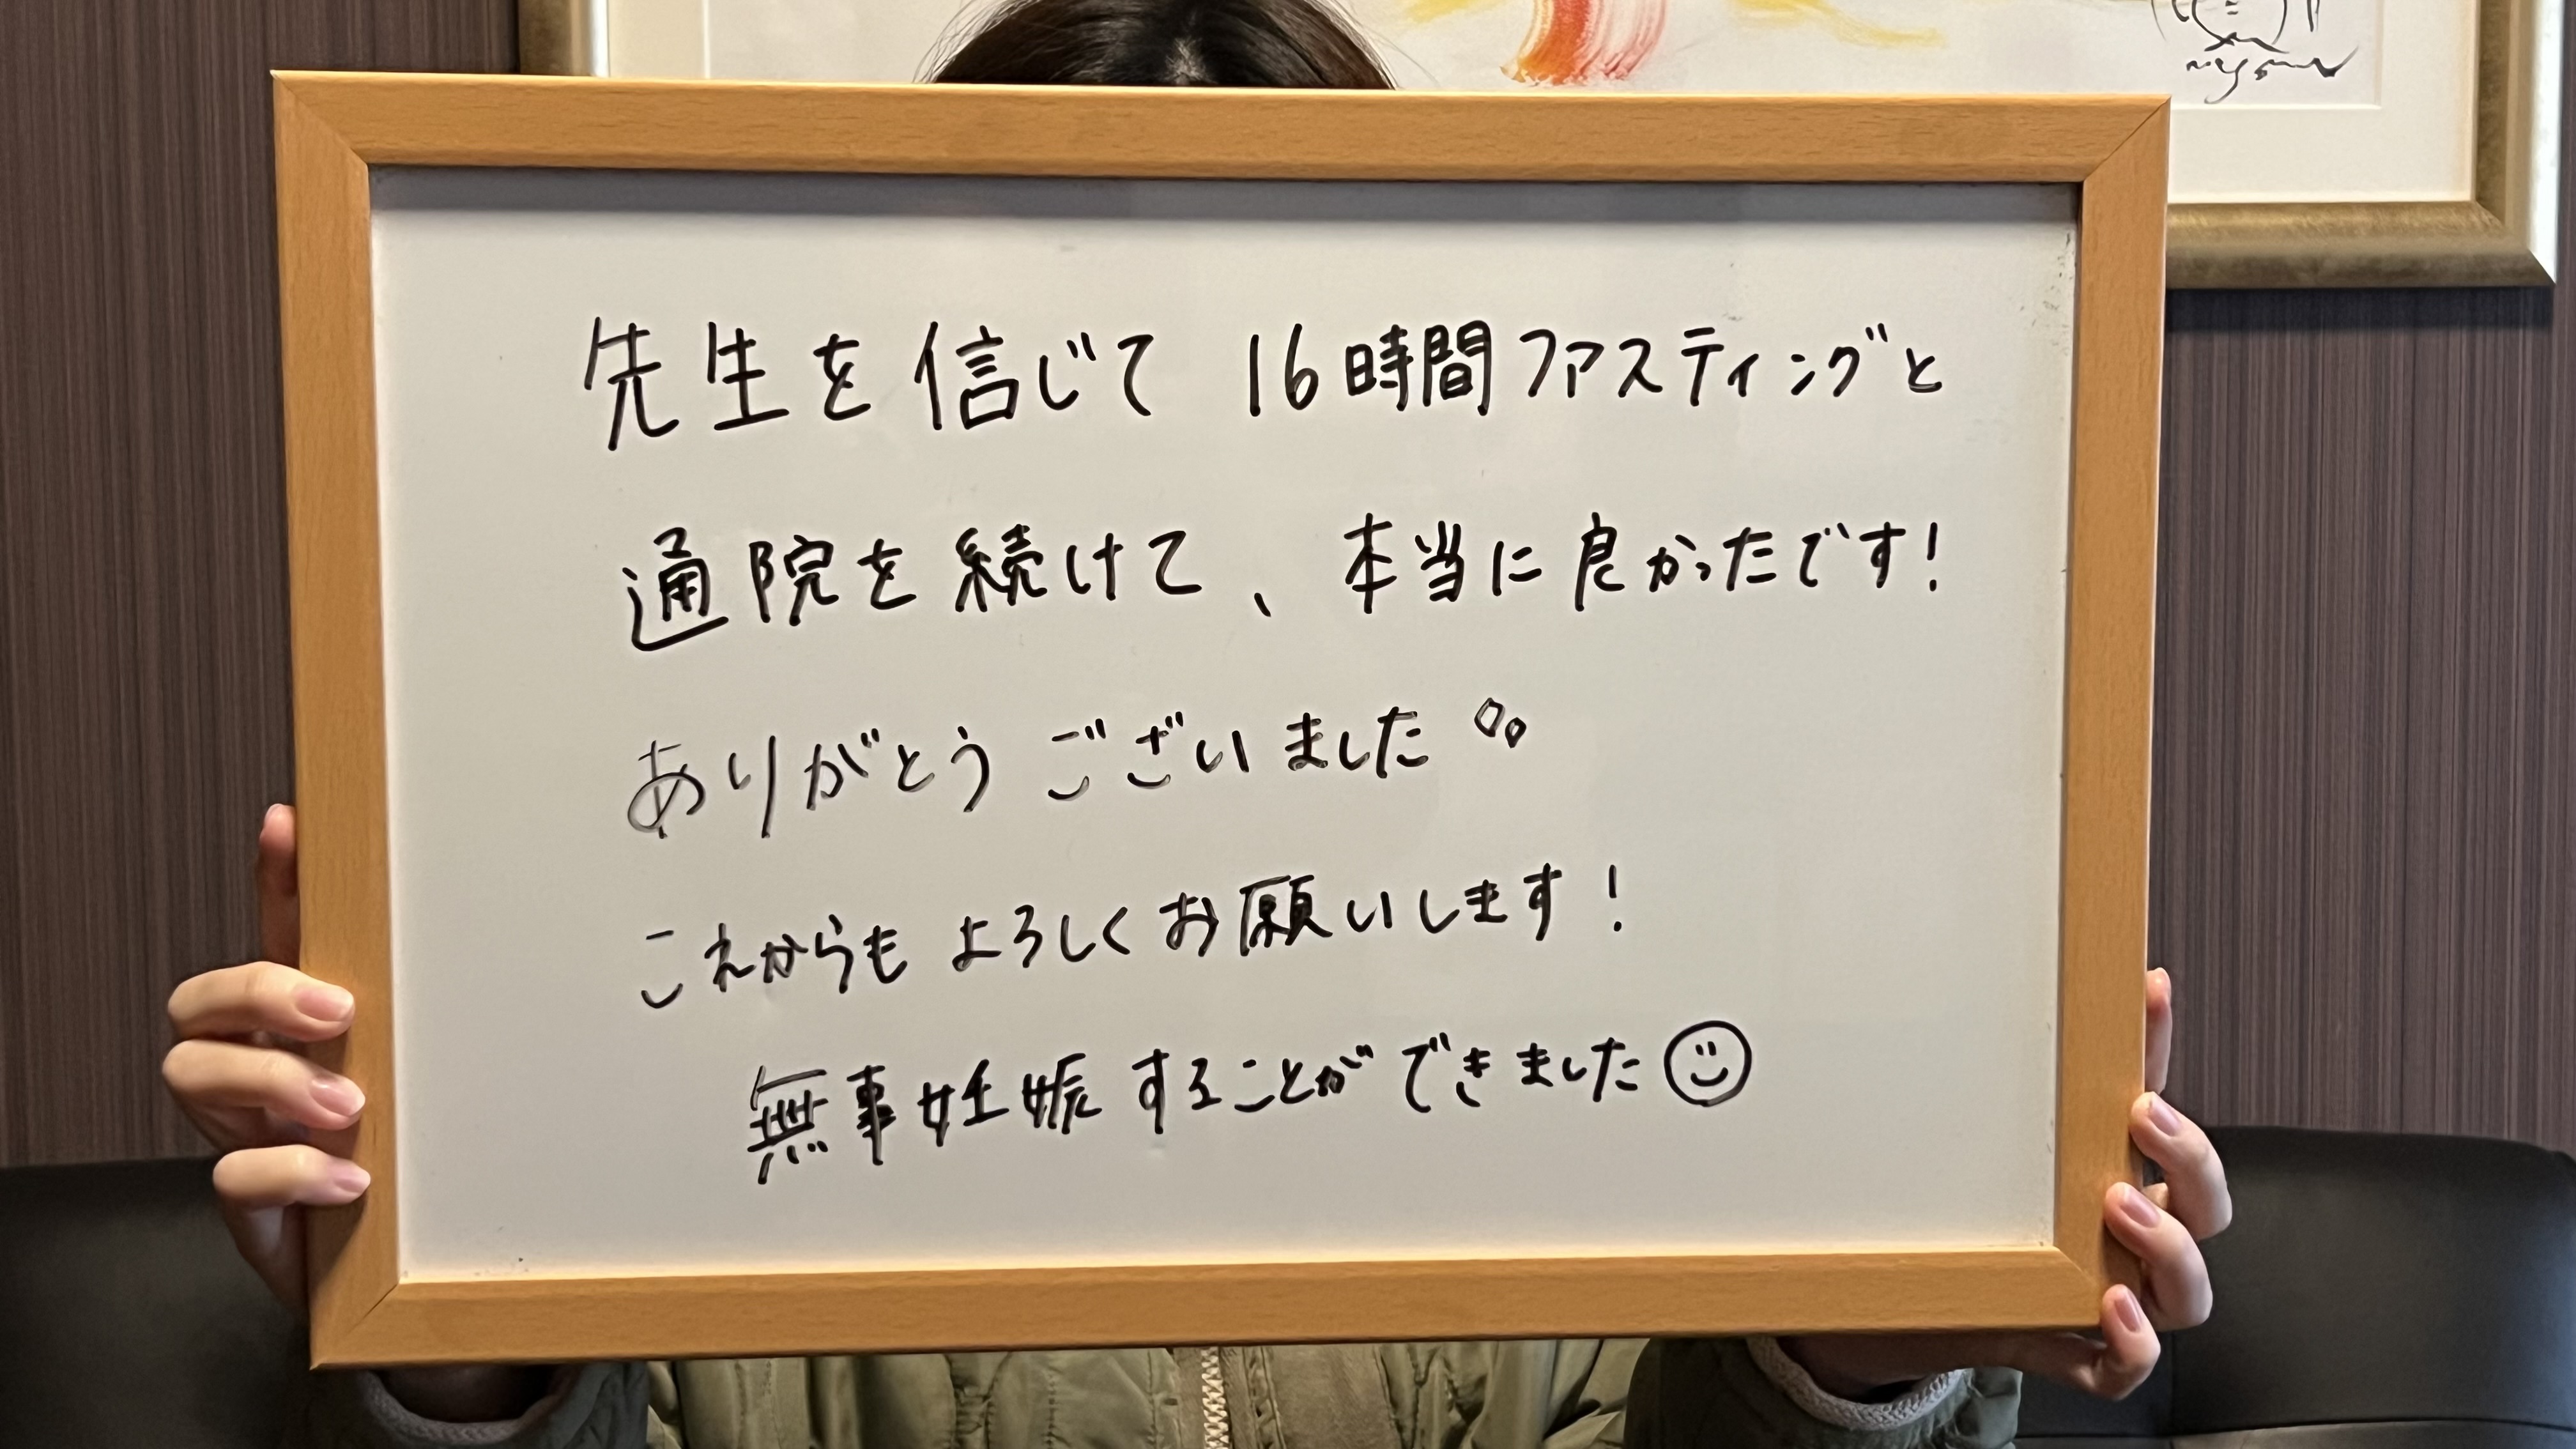 先生を信じて 16時間ファスティングと
通院を続けて、本当に良かったです!
ありがとうございました
これからもよろしくお願いします!
無事妊娠することができました